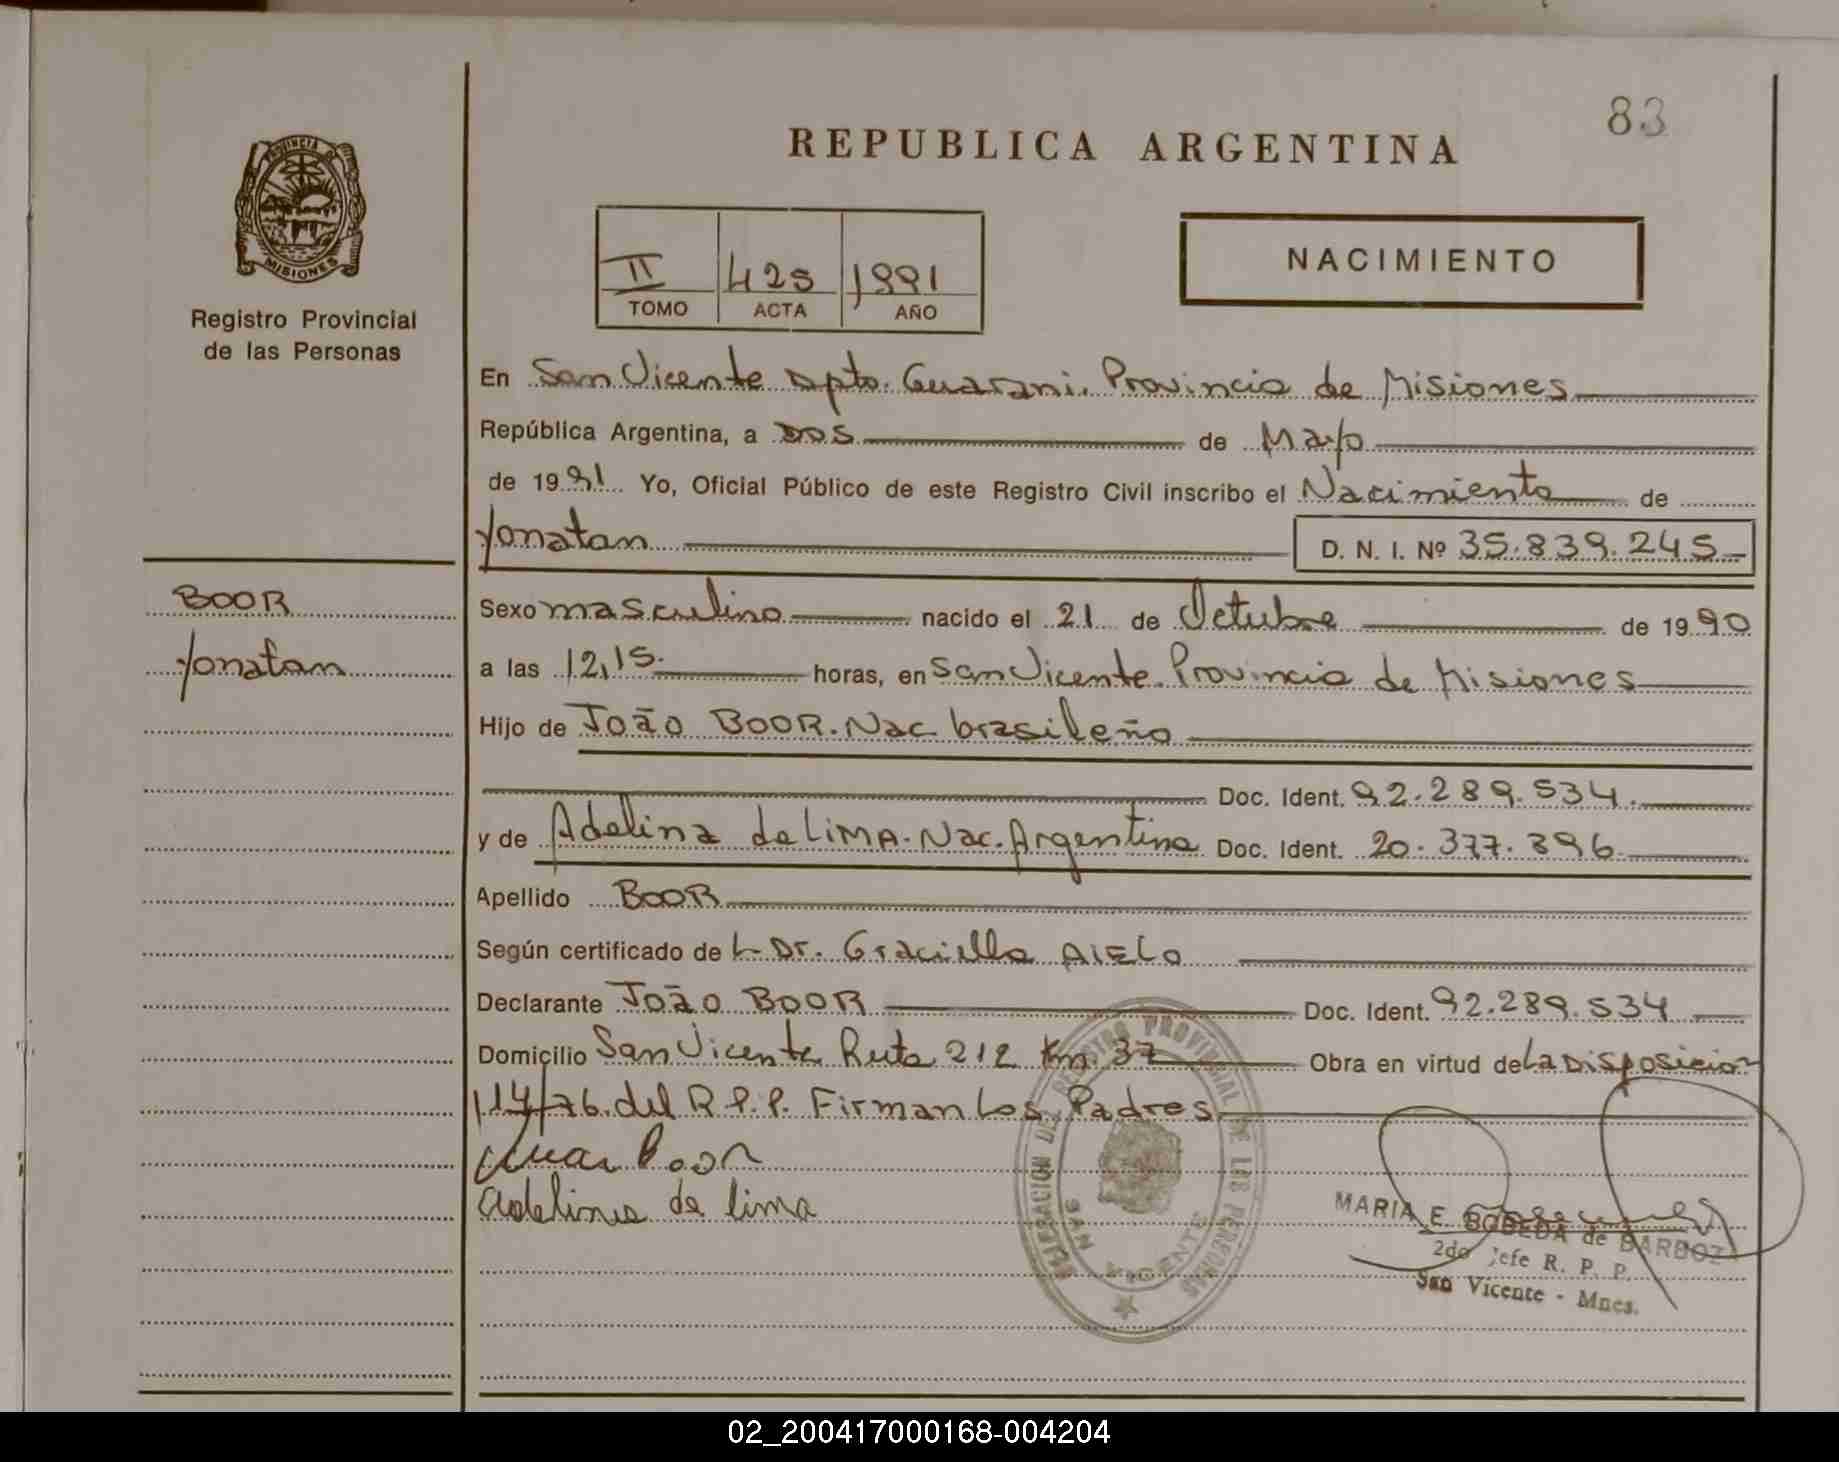 83
REPUBLICA ARGENTINA
PROVINCIA DE
MISIONES
Registro Provincial
de las Personas
II 425 1991
TOMO ACTA AÑO
NACIMIENTO
En San Vicente Dpto. Guarani. Provincia de Misiones
República Argentina, a DOS de Mayo
de 1991 Yo, Oficial Público de este Registro Civil inscribo el Nacimiento de
Yonatan D. N. I. Nº 35.839.245
BOOR
Yonatan
Sexo masculino nacido el 21 de Octubre de 1990
a las 12,15. horas, en San Vicente. Provincia de Misiones
Hijo de João BOOR. Nac brasileño
Doc. Ident. 92.289.534.
y de Adelina de LIMA. Nac. Argentina Doc. Ident. 20.377.396
Apellido BOOR
Según certificado de L Dr. Graciella AIELO
Declarante João BOOR Doc. Ident. 92.289.534
Domicilio San Vicente Ruta 212 Km. 37 Obra en virtud de La Disposicion
114/76. del R.P.P. Firman Los Padres
Boor
adelina de lima
DELEGACION DEL REGISTRO PROVINCIAL DE LAS PERSONAS
SAN VICENTE
MARIA E. BOBEDA de BARBOZA
2do Jefe R. P. P.
San Vicente - Mnes.
02_200417000168-004204